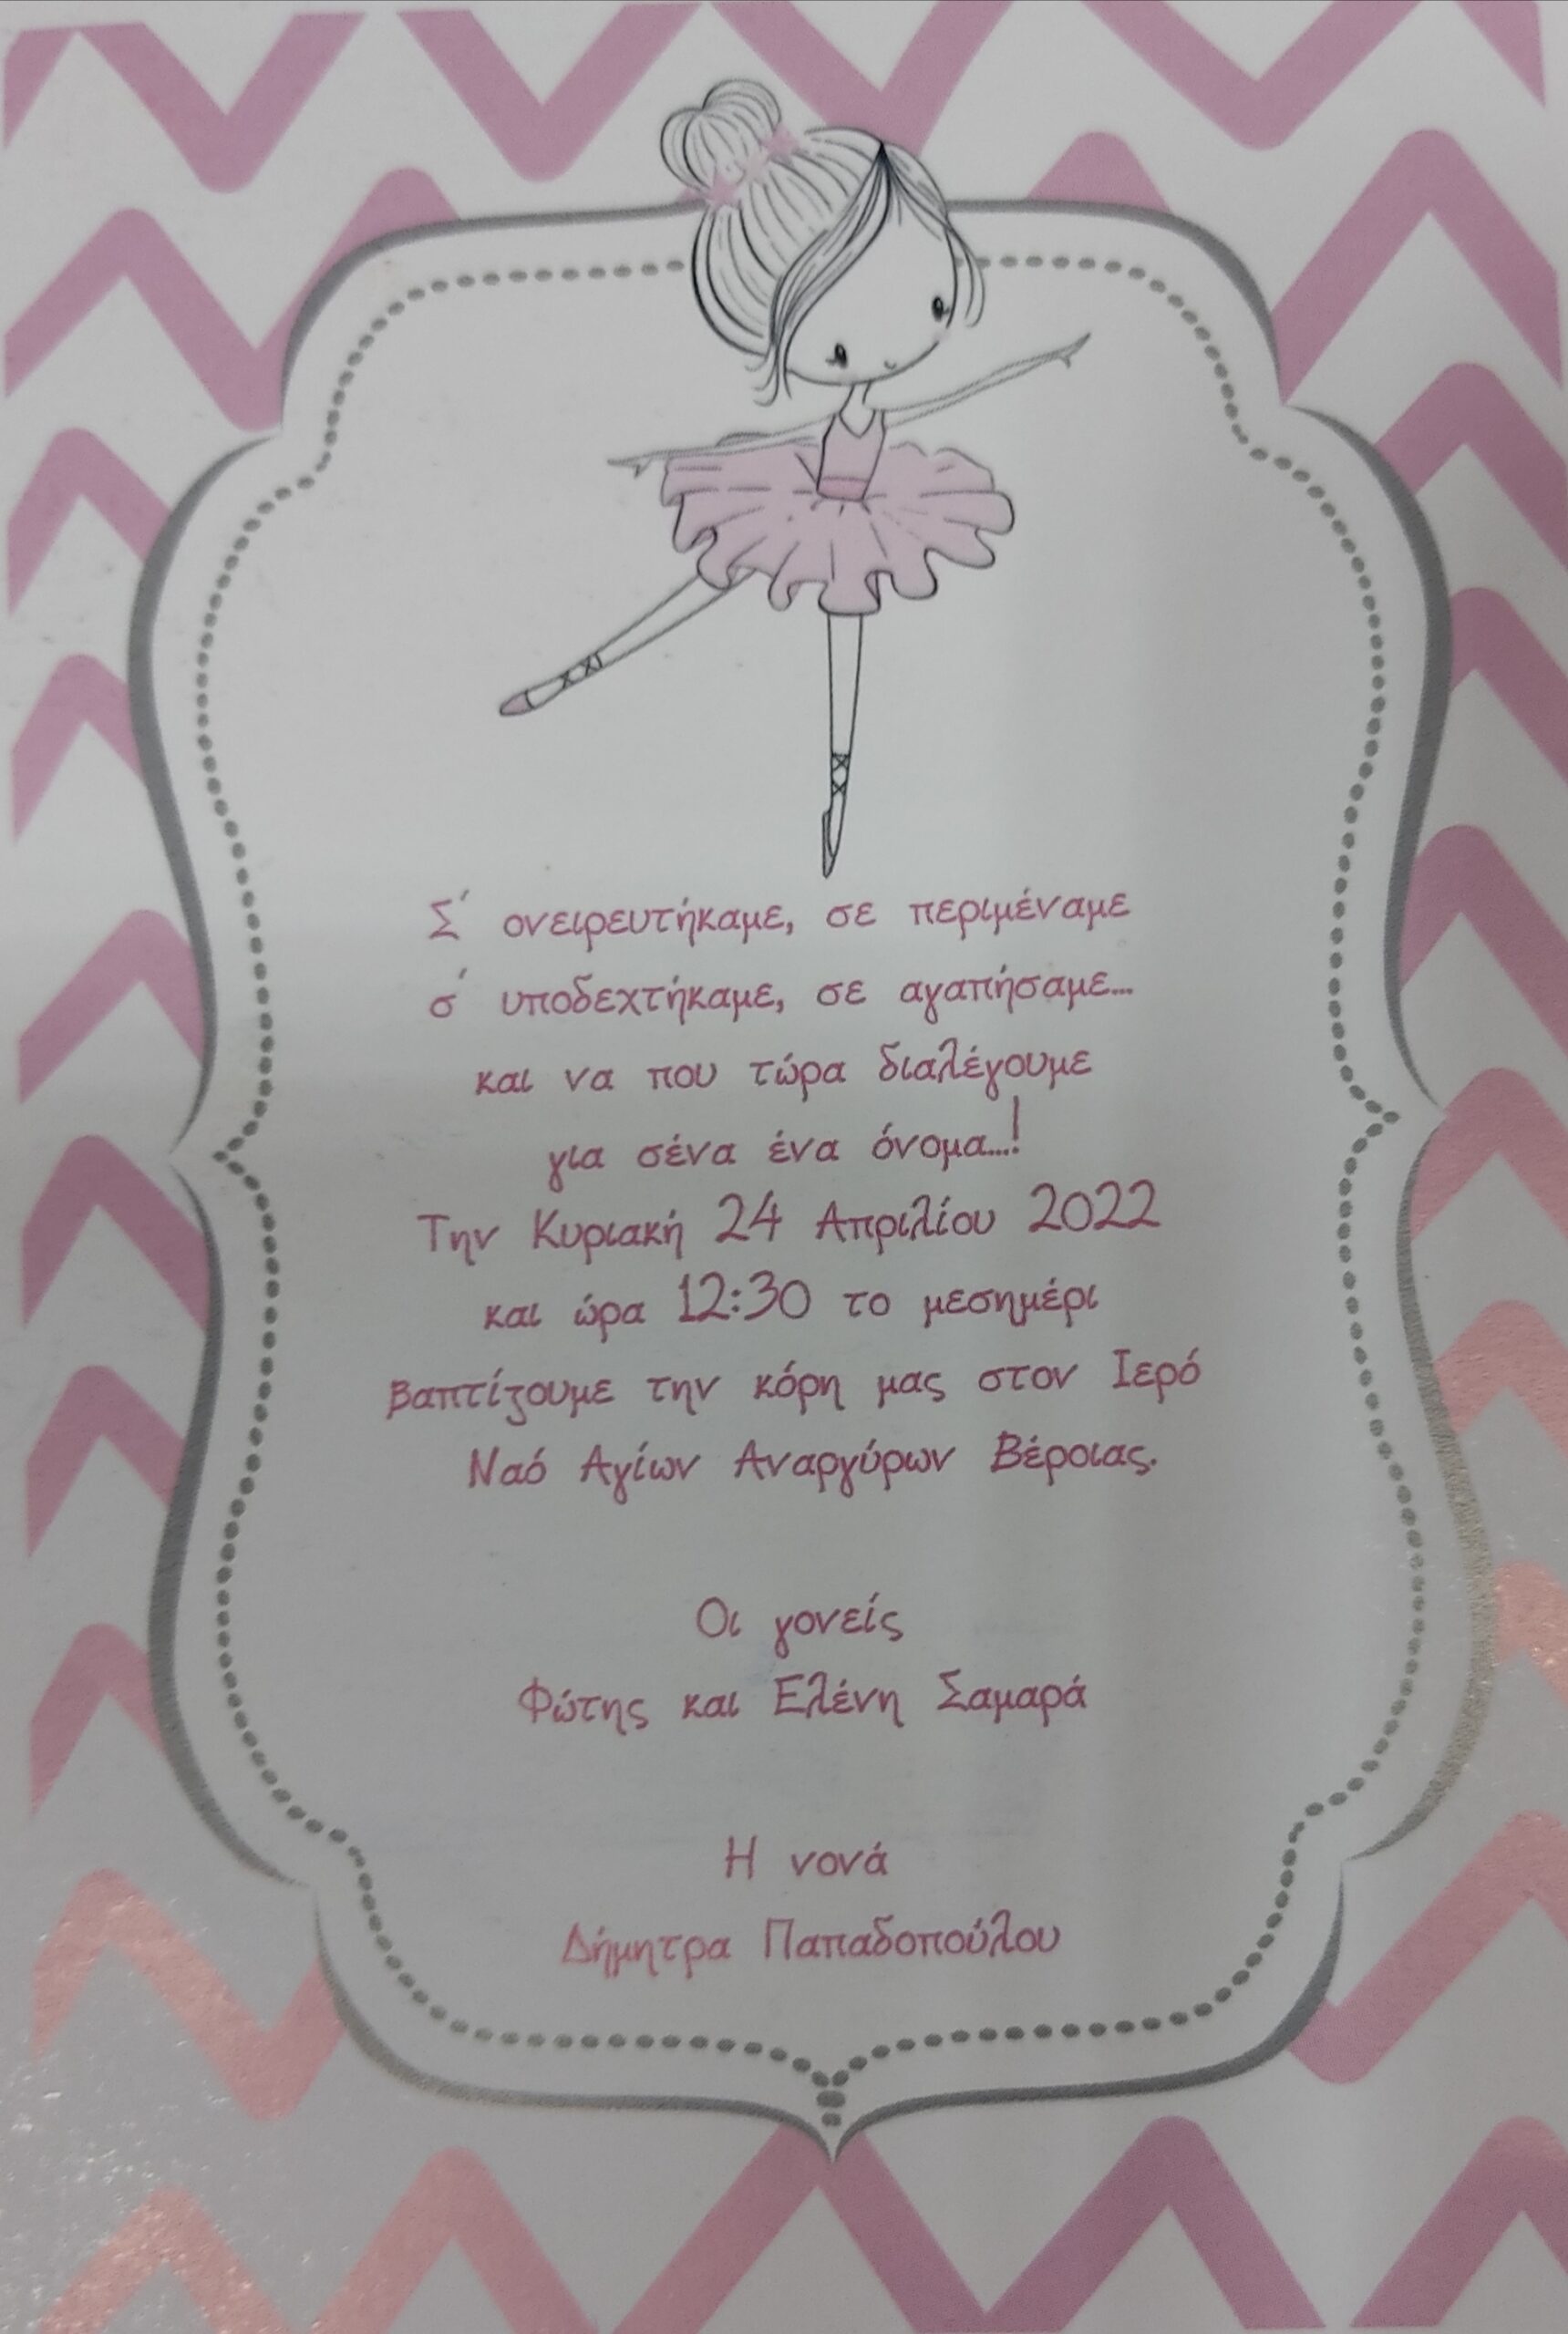 Σ' ονειρευτήκαμε, σε περιμέναμε
σ' υποδεχτήκαμε, σε αγαπήσαμε...
και να που τώρα διαλέγουμε
για σένα ένα όνομα...!
Την Κυριακή 24 Απριλίου 2022
και ώρα 12:30 το μεσημέρι
βαπτίζουμε την κόρη μας στον Ιερό
Ναό Αγίων Αναργύρων Βέροιας.
Οι γονείς
Φώτης και Ελένη Σαμαρά
Η νονά
Δήμητρα Παπαδοπούλου